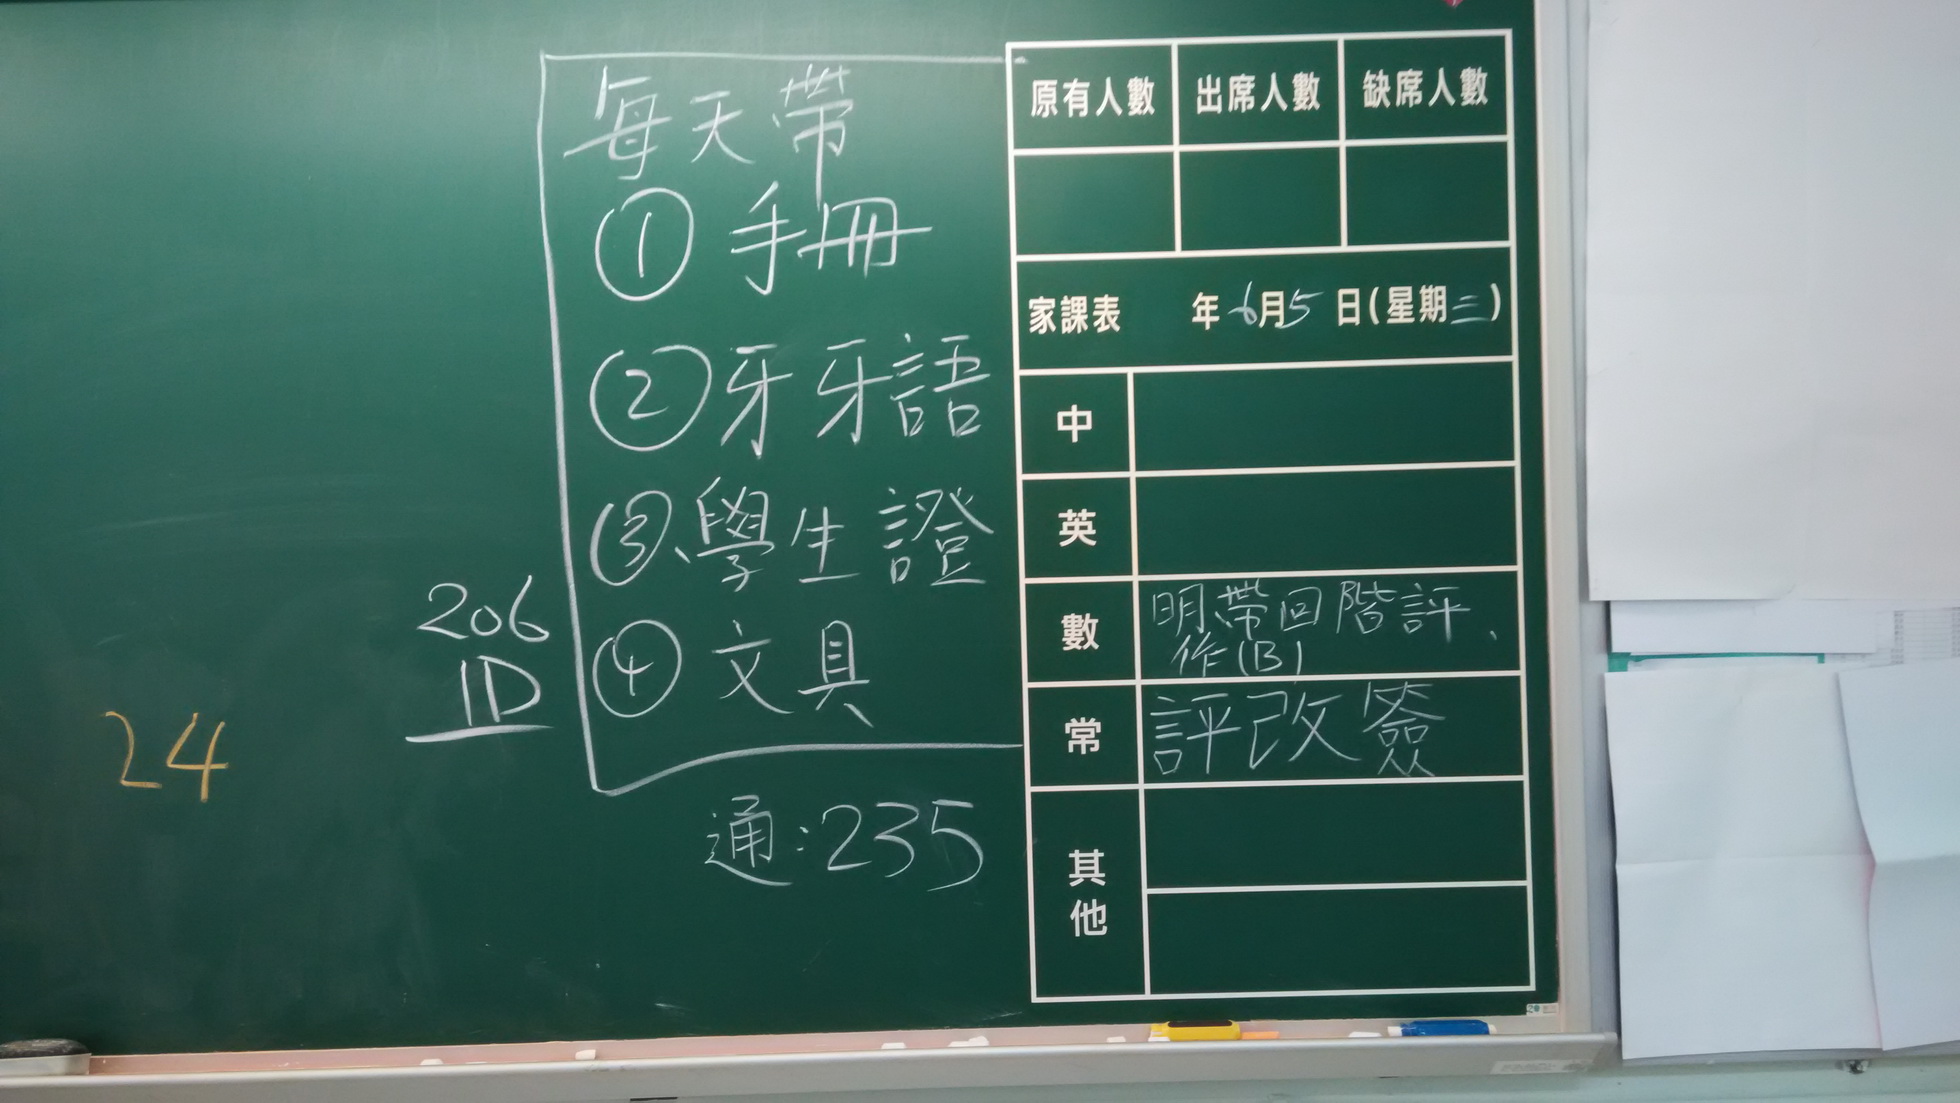 每天帶
① 手冊
② 牙牙語
③、學生證
④ 文具
206
1D
24
通:235
原有人數 出席人數 缺席人數
家課表 年6月5日(星期三)
中
英
數 明帶回階評、
作(B)
常 評改簽
其他